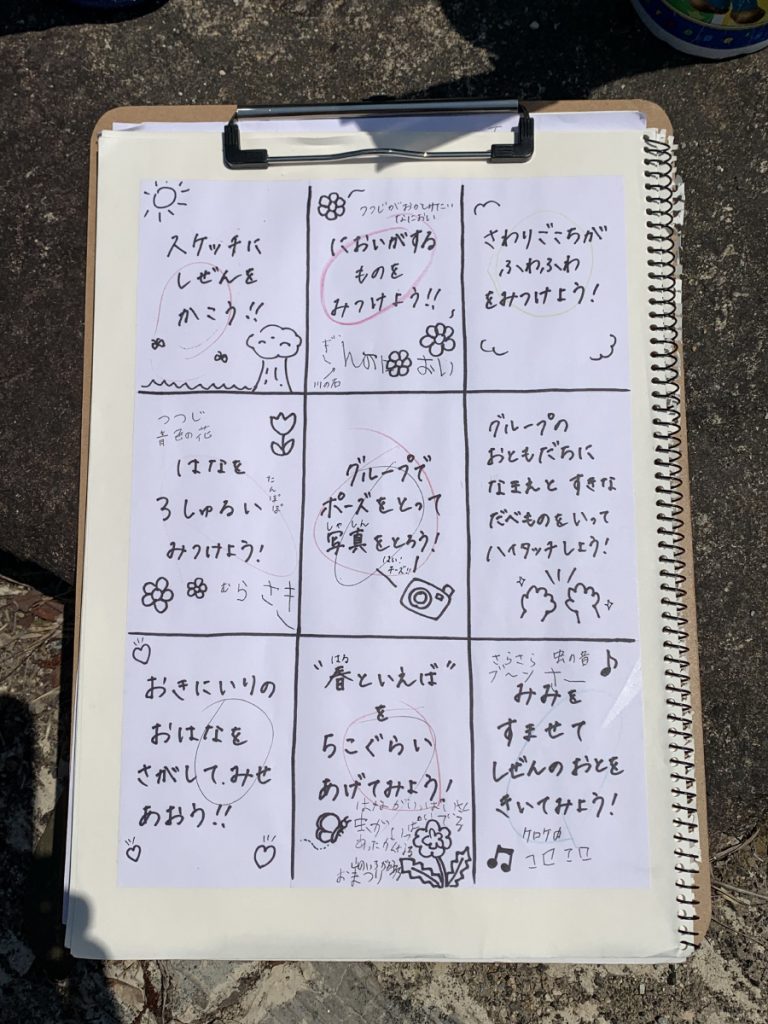 スケッチに
しぜんを
かこう!!
つつじが
においがする
ものを
みつけよう!!
川の石
おい
さわりごこちが
ふわふわ
をみつけよう!
つつじ
音色の花
はなを
3しゅるい
みつけよう!
たんぽぽ
むらさき
グループで
ポーズをとって
しゃ しん
写真をとろう!
はい!
チーズ!!
グループの
おともだちに
なまえと すきな
たべものをいって
ハイタッチしよう!
おきにいりの
おはなを
さがして、みせ
あおう!!
はる
"春といえば"
を
5こぐらい
あげてみよう!
はながいっぱい
虫が
おまつり
さらさら 虫の音
ブ〜ン
みみを
すませて
しぜんの おとを
きいてみよう!
ケロケロ
コロコロ